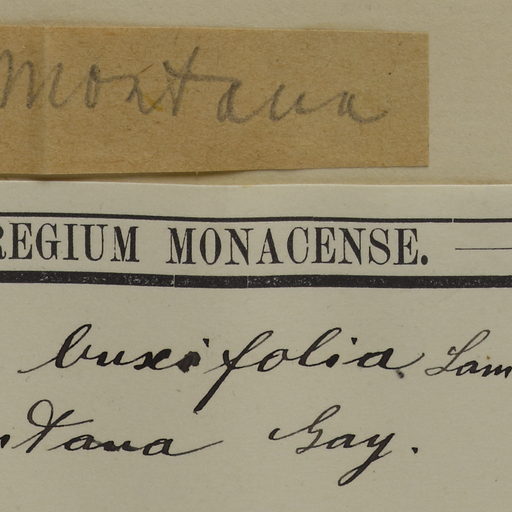 Montana
REGIUM MONACENSE.
buxifolia Lam
ntana Gay.